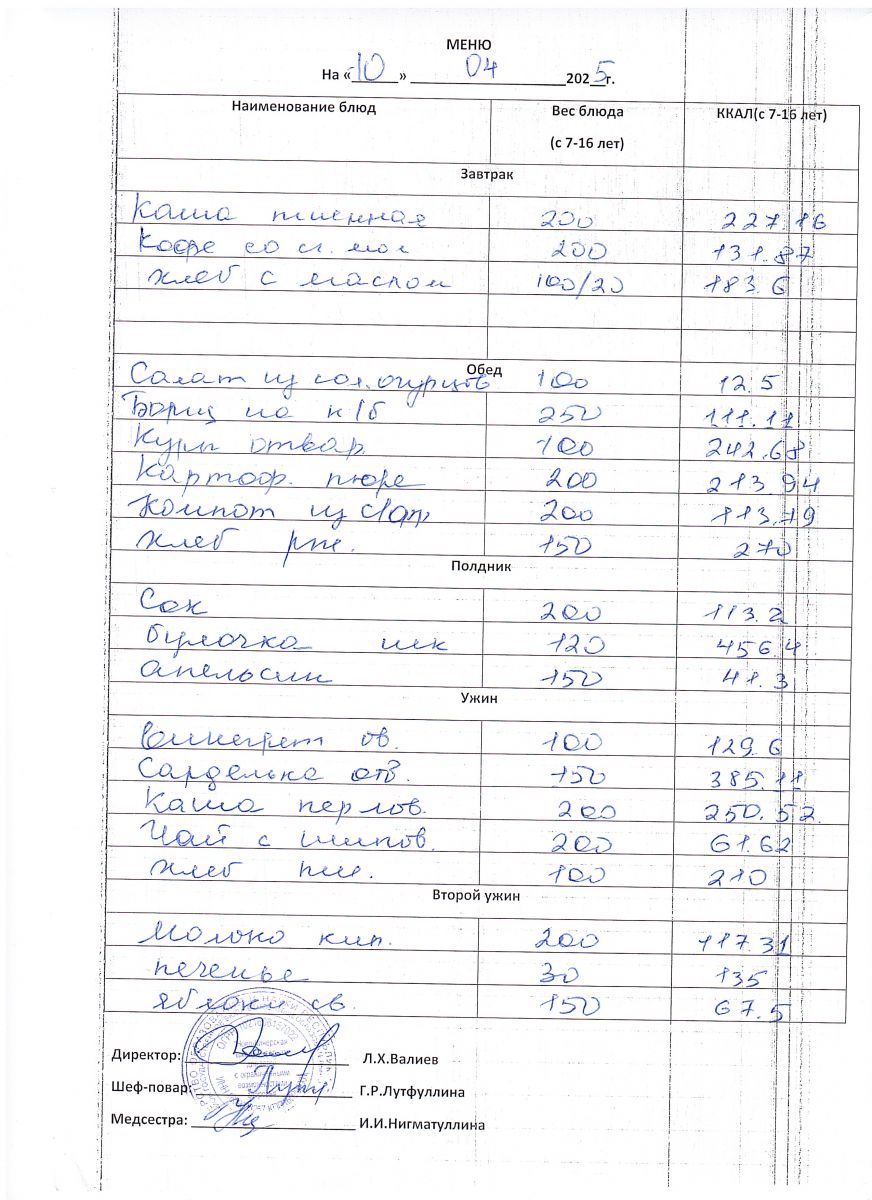 МЕНЮ
На «10» 04 2025г.
Наименование блюд Вес блюда (с 7-16 лет) ККАЛ(с 7-16 лет)
Завтрак
Каша пшенная 200 227.16
Кофе со сг. мол 200 131.87
хлеб с маслом 100/20 183.6
Обед
Салат из сол. огурцов 100 12.5
Борщ на к/б 250 111.11
Куры отвар. 100 242.68
Картоф. пюре 200 213.94
Компот из с/фр 200 113.79
хлеб рж. 150 270
Полдник
Сок 200 113.2
булочка шк 120 456.4
апельсин 150 41.3
Ужин
Винегрет ов. 100 129.6
Сарделька отв. 150 385.11
Каша перлов. 200 250.52
Чай с шипов. 200 61.62
хлеб пш. 100 210
Второй ужин
Молоко кип. 200 117.31
печенье 30 135
яблоки св. 150 67.5
Директор: Л.Х.Валиев
Шеф-повар: Г.Р.Лутфуллина
Медсестра: И.И.Нигматуллина